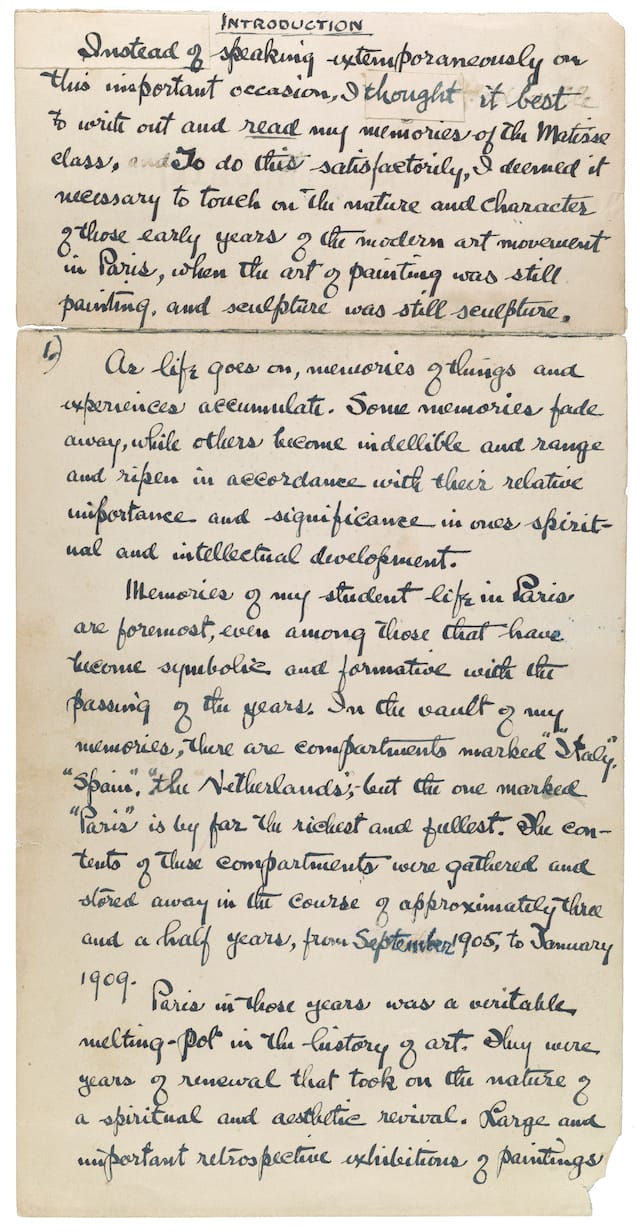 INTRODUCTION
Instead of speaking extemporaneously on
this important occasion, I thought it best
to write out and read my memories of the Matisse
class. To do this satisfactorily, I deemed it
necessary to touch on the nature and character
of those early years of the modern art movement
in Paris, when the art of painting was still
painting, and sculpture was still sculpture.
1.)
As life goes on, memories of things and
experiences accumulate. Some memories fade
away, while others become indellible and range
and ripen in accordance with their relative
importance and significance in ones spirit-
ual and intellectual development.
Memories of my student life in Paris
are foremost, even among those that have
become symbolic and formative with the
passing of the years. In the vault of my
memories, there are compartments marked "Italy",
"Spain", "the Netherlands", but the one marked
"Paris" is by far the richest and fullest. The con-
tents of these compartments were gathered and
stored away in the course of approximately three
and a half years, from September 1905, to January
1909.
Paris in those years was a veritable
melting-pot in the history of art. They were
years of renewal that took on the nature of
a spiritual and aesthetic revival. Large and
important retrospective exhibitions of paintings